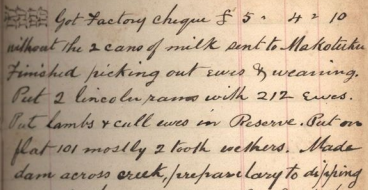 Got Factory cheque £5 = 4 = 10
without the 2 cans of milk sent to Makotuku
Finished picking out ewes & weaning.
Put 2 lincoln rams with 212 Ewes.
Put lambs & cull ewes in Reserve. Put on
flat 101 mostly 2 tooth wethers. Made
dam across creek, preparetary to dipping